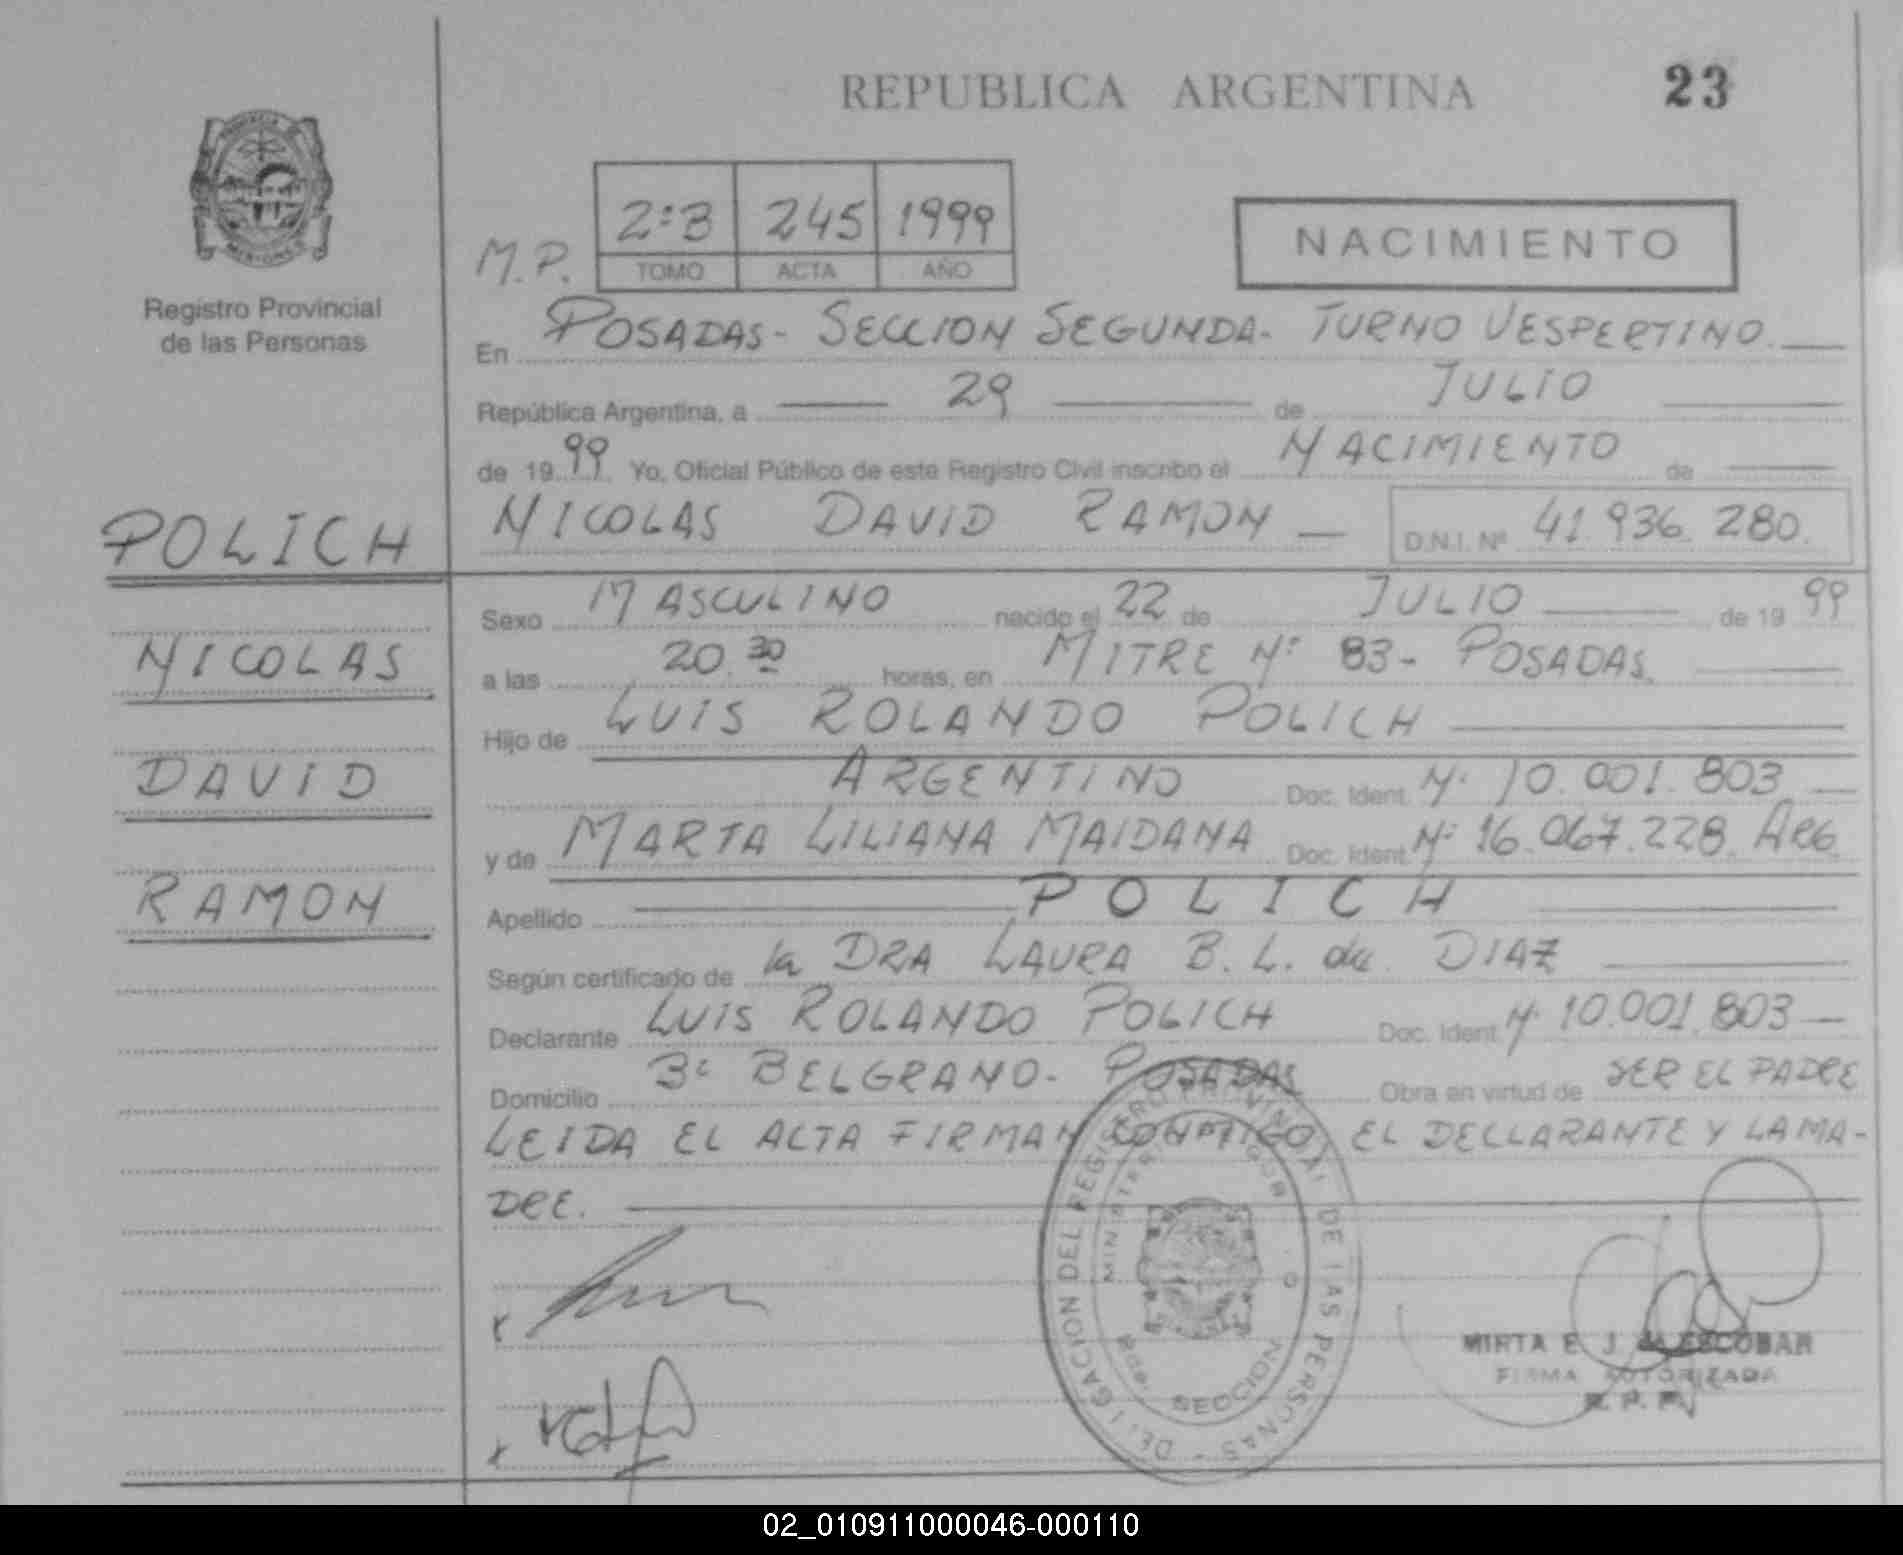 REPUBLICA ARGENTINA
23
Registro Provincial
de las Personas
M.P.
2:B 245 1999
TOMO ACTA AÑO
NACIMIENTO
En POSADAS - SECCION SEGUNDA - TURNO VESPERTINO.
República Argentina, a 29 de JULIO
de 19 99 Yo, Oficial Público de este Registro Civil inscribo el NACIMIENTO de
NICOLAS DAVID RAMON D.N.I. Nº 41.936.280.
POLICH
NICOLAS
DAVID
RAMON
Sexo MASCULINO nacido el 22 de JULIO de 19 99
a las 20.30 horas, en MITRE Nº 83 - POSADAS.
Hijo de LUIS ROLANDO POLICH
ARGENTINO Doc. Ident. Nº 10.001.803
y de MARTA LILIANA MAIDANA Doc. Ident. Nº 16.067.228 ARG.
Apellido POLICH
Según certificado de la DRA LAURA B. L. de DIAZ
Declarante LUIS ROLANDO POLICH Doc. Ident. Nº 10.001.803
Domicilio Bº BELGRANO - POSADAS Obra en virtud de SER EL PADRE
LEIDA EL ACTA FIRMAN CONMIGO, EL DECLARANTE Y LA MA-
DRE.
DELEGACION DEL REGISTRO PROVINCIAL DE LAS PERSONAS
SECCION
MIRTA E. J. de ESCOBAR
FIRMA AUTORIZADA
R. P. P.
02_010911000046-000110